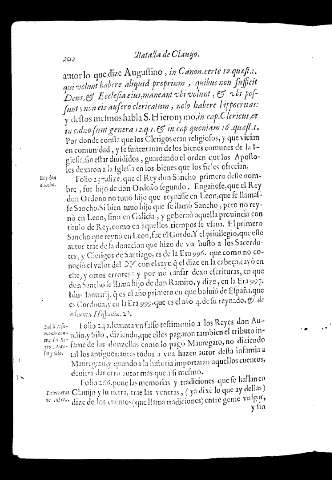 202 Batalla de Clauijo.
autor lo que dize Augustino, in Canon. certe 12. quæst. 1.
qui volunt habere aliquid proprium, quibus non sufficit
Deus, & Ecclesia eius, maneant vbi volunt, & vbi pos-
sunt: non eis aufero clericatum, nolo habere hippocritas:
y destos mesmos habla S. Hieronymo, in cap. Clericus, et
in c. duo sunt genera 12. q. 1. & in cap. quoniam 16. quæst. 1.
Por donde consta que los Clerigos eran religiosos, y que viuian
en comunidad, y se sustentauan de los bienes comunes de la I-
glesia, sin estar diuididos, guardando el orden que los Aposto-
les dexaron a la Iglesia en los bienes que los fieles ofrecian.
Folio 237. dize, que el Rey don Sancho primero deste nom-
bre, fue hijo de don Ordoño segundo. Engañose, que el Rey
don Ordoño no tuuo hijo que reynasse en Leon, que se llamas-
se Sancho. Si bien tuuo hijo que se llamò Sancho, pero no rey-
nò en Leon, sino en Galicia, y gouernò aquella prouincia con
titulo de Rey, como en aquellos tiempos se vsaua. El primero
Sancho que reynò en Leon, fue el Gordo. Y el priuilegio, que este
autor trae de la donacion que hizo de vn busto a los Sacerdo-
tes, y Clerigos de Santiago, es de la Era 996. que como no co-
nocio el valor del
este, y otros errores: y por no causar
don Sancho se llama hijo de don Ramiro, y dize, en la Era 997.
Idus Ianuarij. q̃ es el año primero en que boluio de España, que
es Cordoua, y en la Era 999. que es el año 2. de su reynado,
Folio 242. leuanta vn falso testimonio a los Reyes don Au-
relio, y Silo, diziendo, que ellos pagaron tambien el tributo in-
fame de las donzellas como lo pagò Mauregato, no diziendo
tal los antiguos: antes todos a vna hazen autor desta infamia a
Mauregato, y quando a la historia importaran aquellos cuentos,
deuiera dar otro autor mas que a si mesmo.
Folio 266. pone las memorias y tradiciones que se hallan en
Clauijo y su tierra, tras las ventas, (ya dixe lo que ay dellas)
dize de los cuentos (que llama tradiciones) entre gente vulgar,
y sin